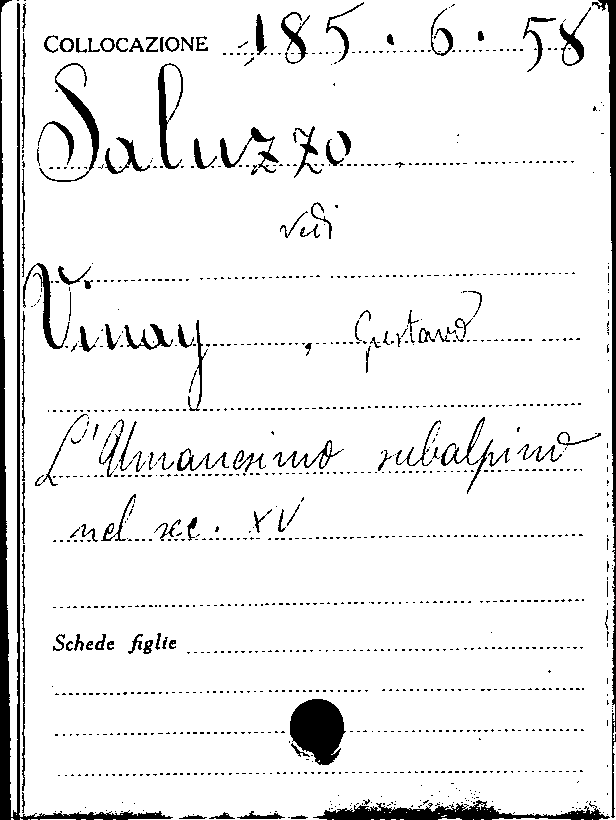 COLLOCAZIONE 185.6.58
Saluzzo
vedi
Vinay, Gustavo
L'Umanesimo subalpino
nel sec. XV
Schede figlie